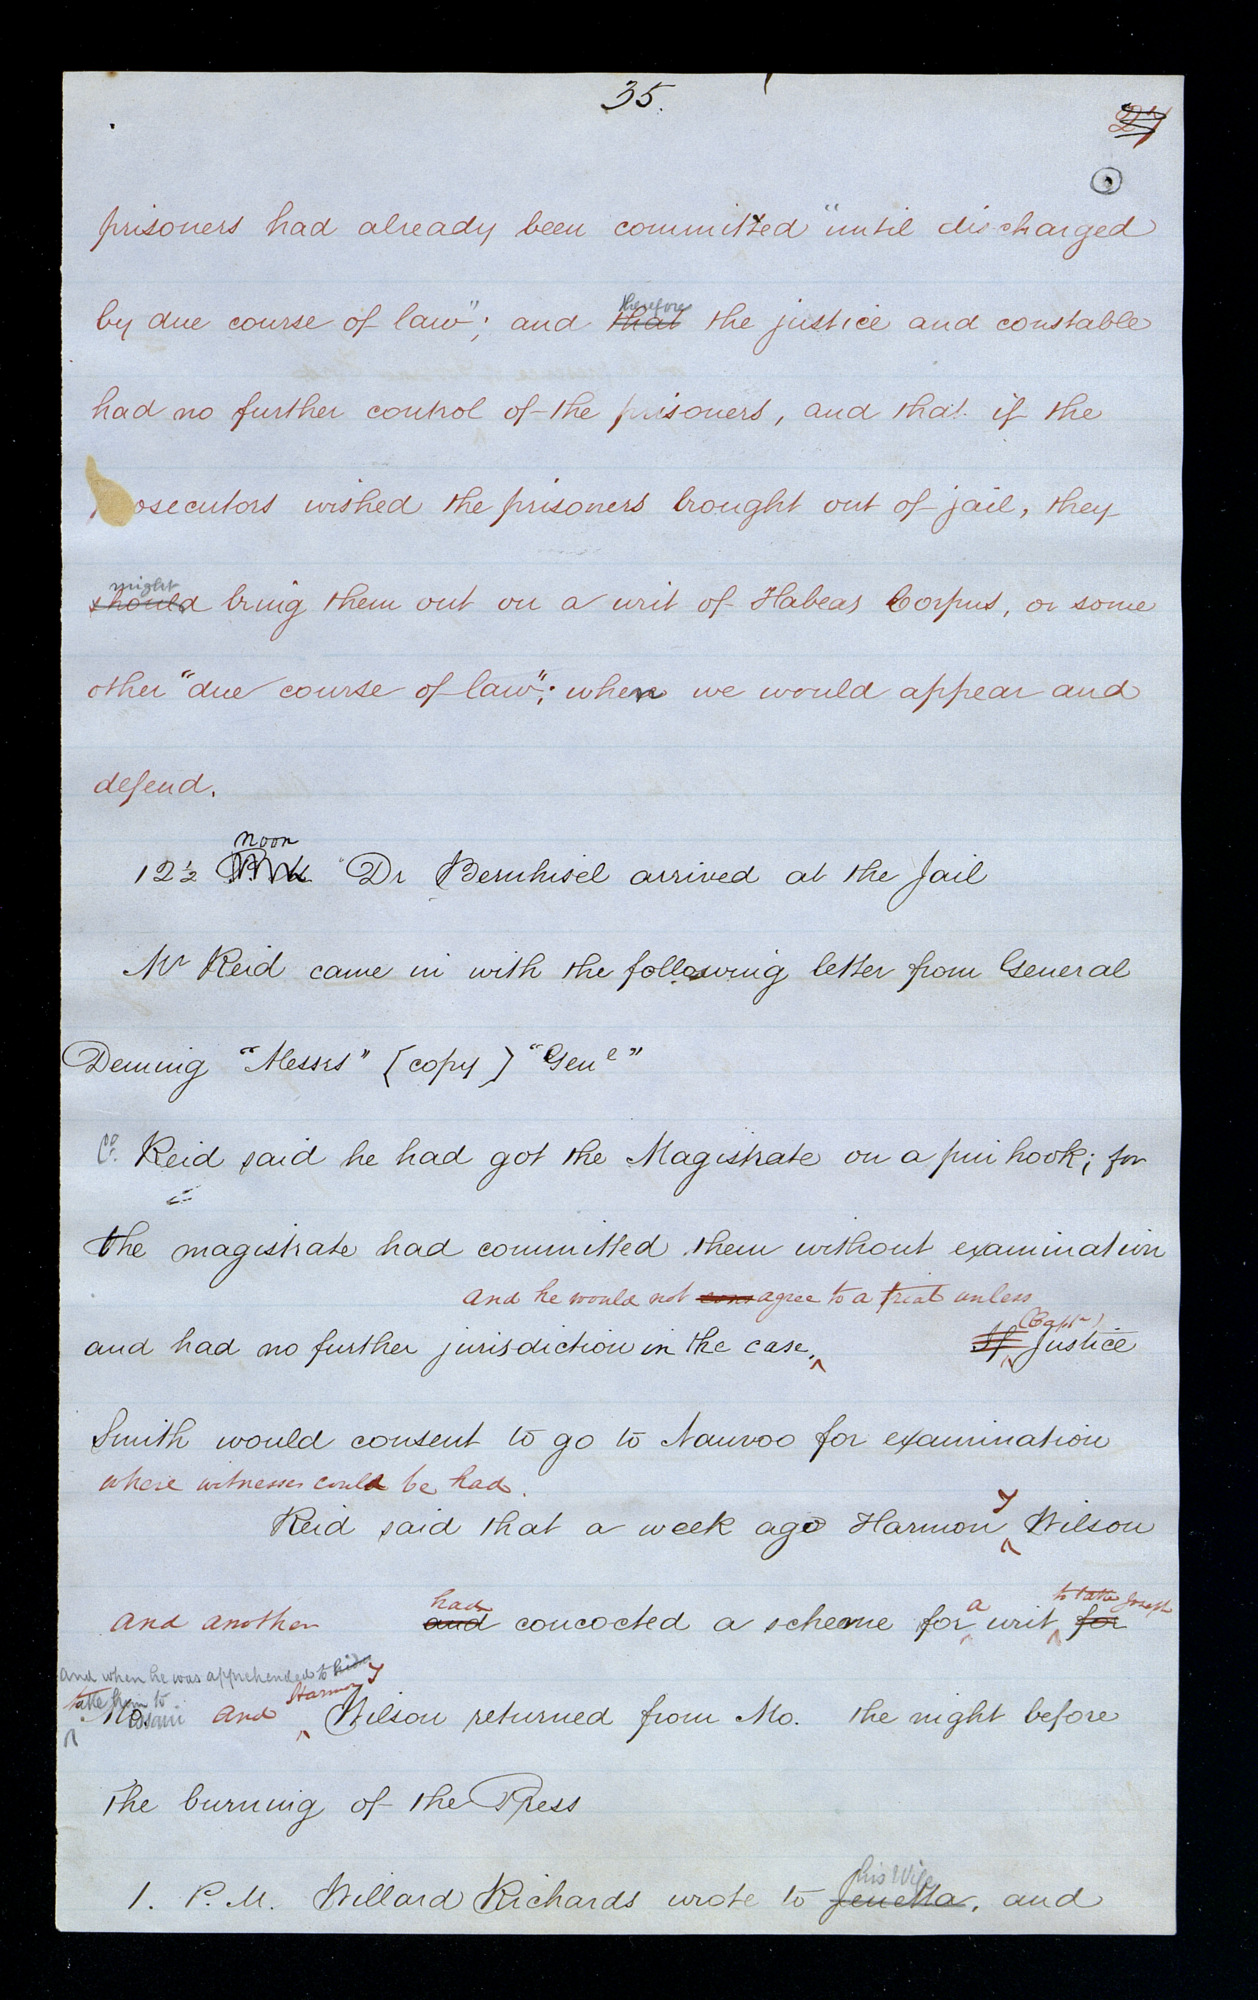 35.
27
prisoners had already been committed "until discharged
therefore
by due course of law"; and that the justice and constable
had no further control of the prisoners, and that if the
osecutors wished the prisoners brought out of jail, they
might
should bring them out on a writ of Habeas Corpus, or some
other "due course of law"; when we would appear and
defend.
noon
12½ Dr Bernhisel arrived at the Jail
Mr Reid came in with the following letter from General
Deming "Messrs" [copy] "Genl"
Reid said he had got the Magistrate on a pin hook; for
the magistrate had committed them without examination
and he would not cons agree to a trial unless
(Capt)
and had no further jurisdiction in the case, if Justice
Smith would consent to go to Nauvoo for examination
where witnesses could be had.
y
Reid said that a week ago Harmon Wilson
had a to take Joseph
and another and concocted a scheme for writ for
and when he was apprehended to hide
take him to Harmon y
Mo. and Wilson returned from Mo. the night before
the burning of the Press
his Wife
1. P.M. Willard Richards wrote to Jenetta, and